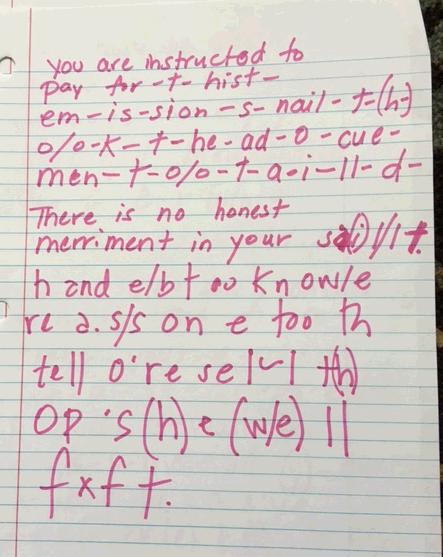 you are instructed to
pay for -t- hist-
em-is-sion-s-nail-t-(h-)
o/o-k-t-he-ad-o-cue-
men-t-o/o-t-a-i-ll-d-
There is no honest
merriment in your
h and e/bt oo Know/e
re a.s/s on e too th
tell o're se th)
OP 's(h)e (w/e) ll
fxft.